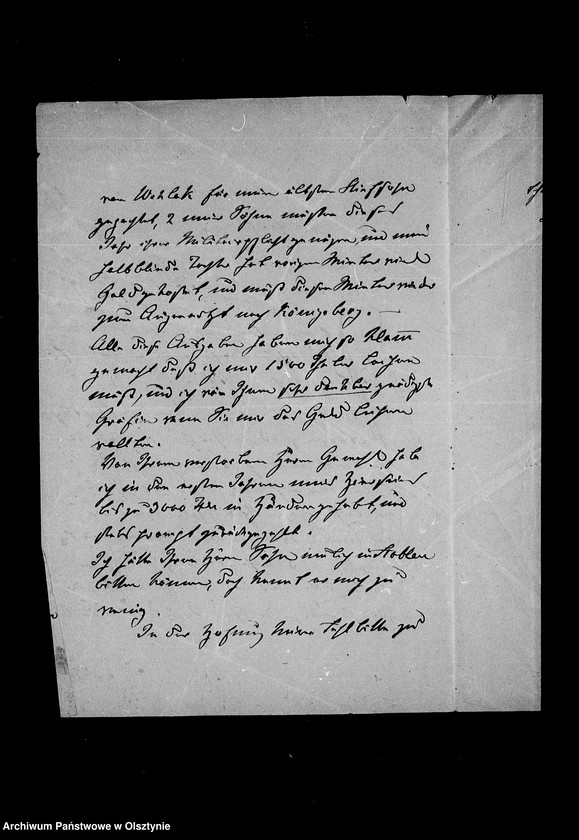 von Wohlak für meinen ältesten Stiefsohn
gezahlt, 2 meine Söhne mußten dieses
Jahr ihrer Militairpflicht genügen und meine
halbblinde Tochter hat vorigen Winter viel
Geld gekostet, und muß diesen Winter wieder
zum Augenarzt nach Königsberg. —
Alle diese Ausgaben haben mich so klamm
gemacht daß ich mir 1500 Thaler leihen
muß, und ich wäre Ihnen sehr dankbar gnädigste
Gräfin wenn Sie mir das Geld leihen
wollten.
Von Ihrem verstorbenen Herrn Gemahl habe
ich in den ersten Jahren meines Hierseins
bis zu 3000 Thlr in Händen gehabt, und
stets prompt zurückgezahlt.
Ich hätte Ihren Herrn Sohn neulich in
bitten können, doch kennt er mich zu
wenig.
In der Hoffnung keine Fehlbitte zu